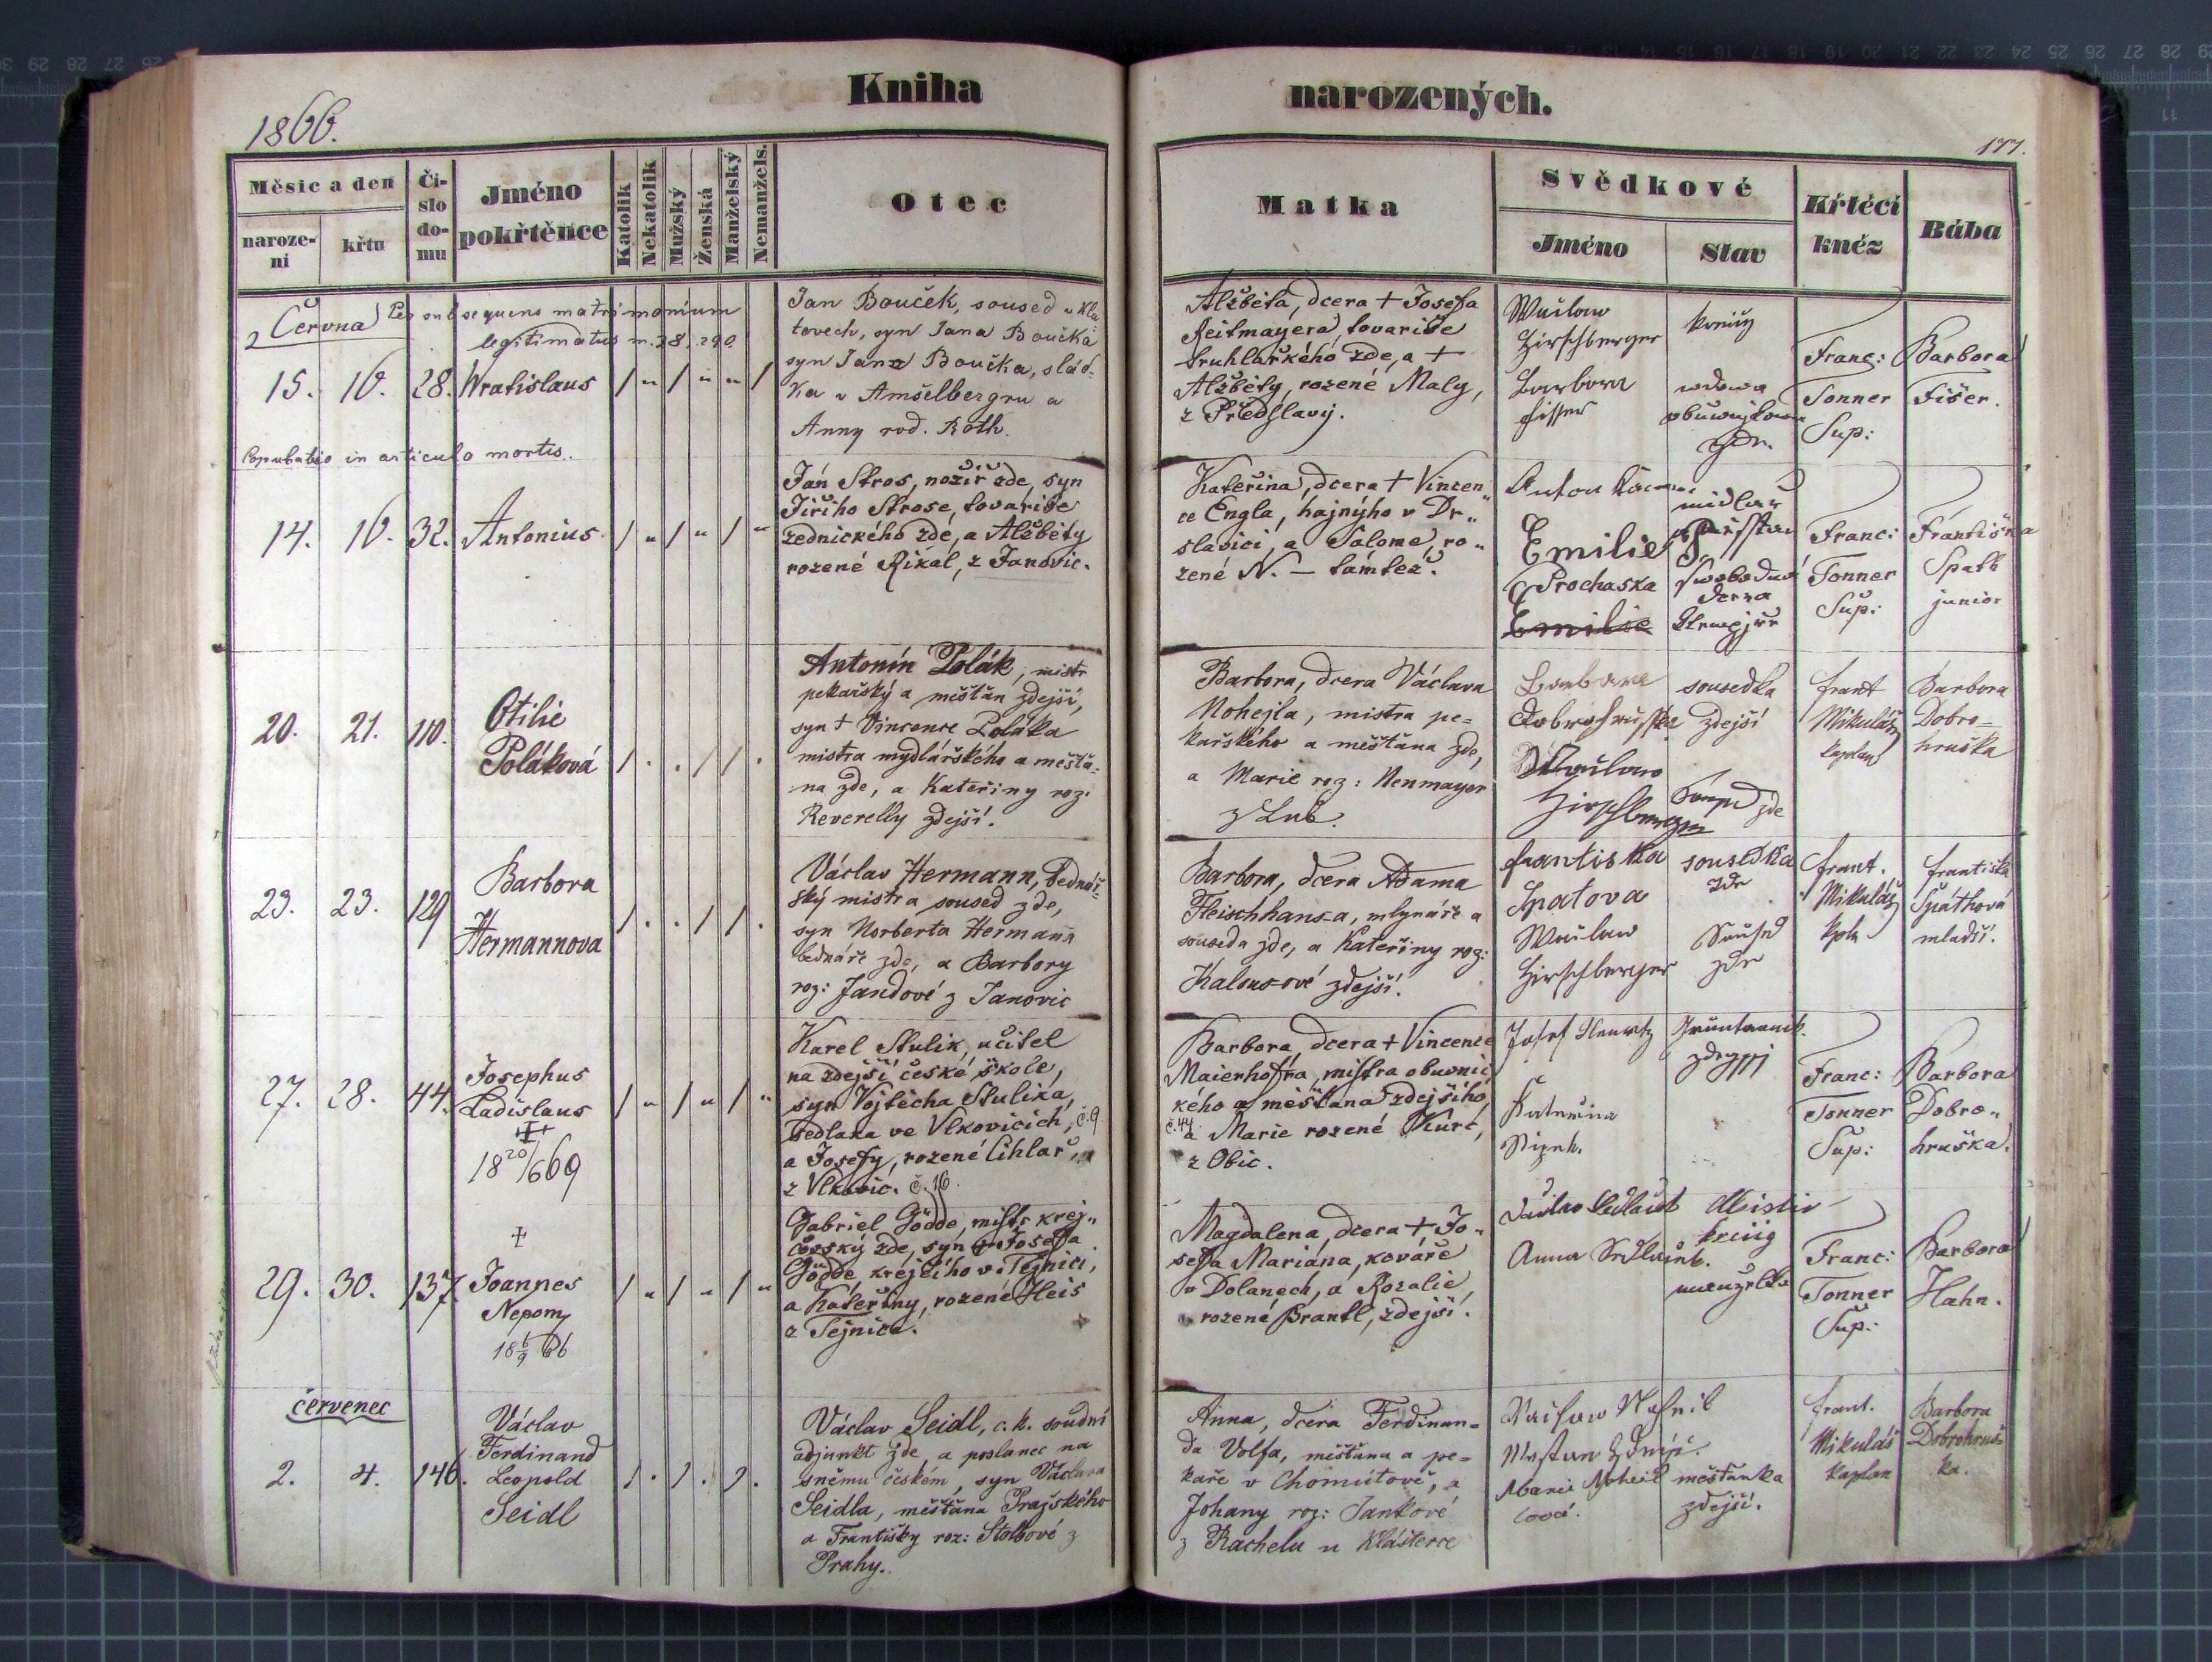 Kniha
narozených.
1866.
177.
Měsíc a den
naroze-
ní
křtu
Čí-
slo
do-
mu
Jméno
pokřtěnce
Katolík
Nekatolík
Mužský
Ženská
Manželský
Nemanžels.
Otec
Matka
Svědkové
Jméno
Stav
Křtécí
kněz
Bába
Června
Per subsequens matrimonium
legitimatus
15. 16. 28. Wratislaus
Copulatio in articulo mortis.
Jan Bouček, soused
tovech, syn Jana Boučka
syn Jana Boučka, slád-
ka v Amšelbergru a
Anny rod. Roth.
Alžběta, dcera + Josefa
Reitmayera, tovariše
truhlařkého zde, a +
Alžběty, rozené Maly,
z Předslavy.
Hirschberger
krejčy
Barbora
Fisser
wdowa
Franc:
Tonner
Sup:
Barbora
Fišer.
14. 16. 32. Antonius
Ján Stros, nožíř zde, syn
Jiřího Strose, továriše
zednického zdé, a Alžběty
rozené Řikál, z Janovic.
Kateřina, dcera + Vincen„
ce Engla, hajnýho v Dr„
slavici, a Salome, ro„
zené N. – támtež.
Anton
midlar
Emilie
Prochaska
Emilie
swobodna
dcera
Franc:
Tonner
Sup:
Františka
Spatt
junior
20. 21. 110.
Otilie
Poláková
Antonín Polák, mistr
pekařský a měštan zdejší,
syn + Vincence Poláka
mistra mydlářského a měšťa-
na zde, a Kateřiny roz.
Reverelly zdejší.
Barbora, dcera Václava
Nohejla, mistra pe-
kařského a měšťana zde,
a Marie roz: Nenmayer
z Lub.
Barbara
Dobrohruška
sousedka
zdejší
Hirschberger
zde
frant
Mikuláš
kaplan
Barbora
Dobro-
hruška
23. 23. 129
Barbora
Hermannova
Václav Hermann, bednář-
ský mistr a soused zde,
syn Norberta Hermana
bednáře zde, a Barbory
roz: Jandové z Janovic
Barbora, dcera Adama
Fleischhansa, mlynáře a
souseda zde, a Kateřiny roz:
Kalousové zdejší.
frantiska
Spatova
sousedka
zde
Waclaw
Hirschberger
Soused
zde
frant.
Mikuláš
kpl
františka
Späthová
mladší.
27. 28. 44.
Josephus
Ladislaus
18 20/6 69
Karel Stulik, učitel
na zdejší české škole,
syn Vojtěcha Stulika,
sedlaka ve Vlkovicích, č. 9
a Josefy, rozené Cihlař,
z Vlkovic. č. 16.
Barbora, dcera + Vincence
Maierhofra, mistra obuvnic
kého a mešťana zdejšího,
č. 44
a Marie rozené Kurc,
z Obic.
Josef
Katerina
Franc:
Tonner
Sup:
Barbora
Dobro„
hruška.
29. 30. 137.
Joannes
Nepom.
18 6/9 66
Gabriel Gödde, mistr krej„
čovský zde, syn + Josefa
Gödde, krejčího v Tejnici,
a Kateřiny, rozené Heis
z Tejnice.
Magdalena, dcera + Jo„
sefa Mariána, kováře
v Dolanech, a Rozalie,
rozené Brantl, zdejší.
Mistr
krejčí
Anna Sedlaček.
manzelka
Franc:
Tonner
Sup:
Barbora
Hahn.
červenec
2. 4. 146.
Václav
Ferdinand
Leopold
Seidl
Václav Seidl, c. k. soudní
adjunkt zde a poslanec na
sněmu českém, syn Václava
Seidla, měšťana Pražského
a Františky roz: Stolbové z
Prahy.
Anna, dcera Ferdinan-
da Volfa, měšťana a pe-
kaře v Chomútově, a
Johany roz: Jankové
z Rachelu u Klášterce
Marie Noheil
lová.
měšťanka
zdejší.
frant.
Mikuláš
kaplan
Barbora
Dobrohruš-
ka.